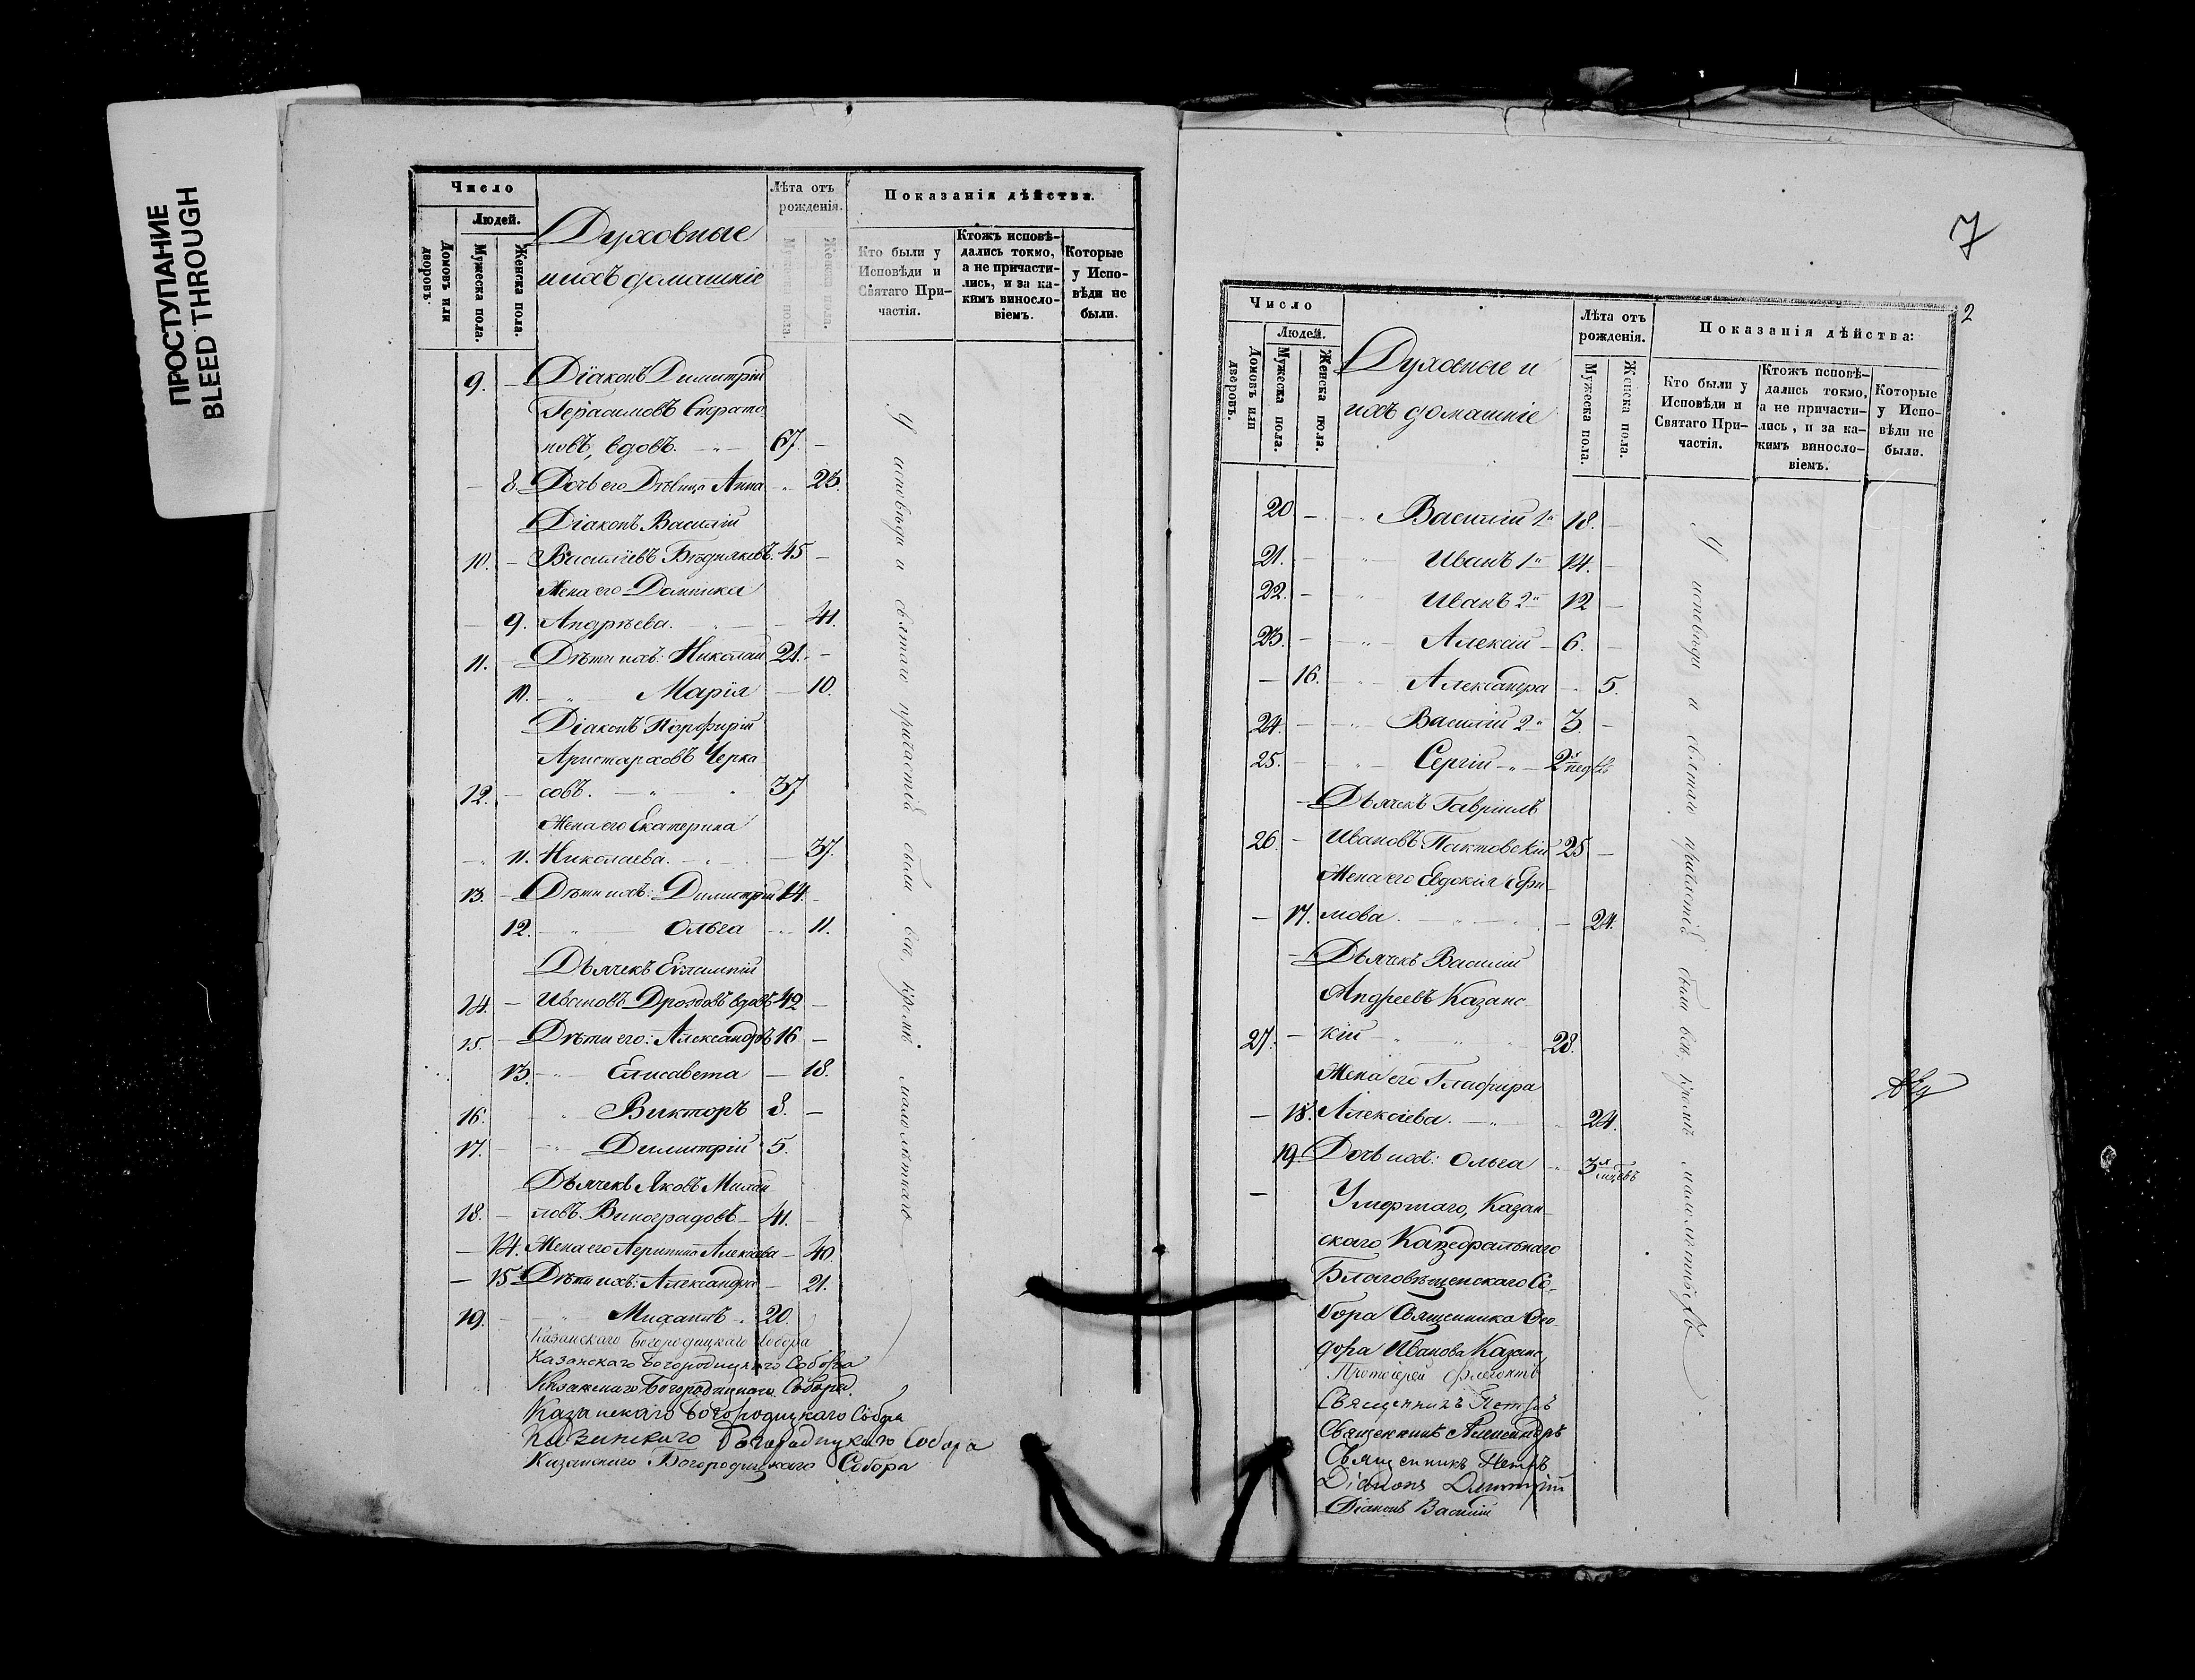 ПРОСТУПАНИЕ
BLEED THROUGH
Число
Людей.
Домовъ или дворовъ.
Мужеска пола.
Женска пола.
Духовные
и ихъ домашніе
Лѣта отъ рожденія.
Мужеска пола.
Женска пола.
Показанія дѣйства.
Кто были у Исповѣди и Святаго Причастія.
Ктожъ исповѣдались токмо, а не причастились, и за какимъ винословіемъ.
Которые у Исповѣди не были.
9. — Діаконъ Димитрій
Герасимовъ Страто
новъ, вдовъ. — 67. —
— 8. Дочь его Дѣвица Анна — 25.
Діаконъ Василій
10. — Васильевъ Бѣдняковъ. 45 —
Жена его Домника
— 9. Андрѣева. — 41.
11. — Дѣти ихъ: Николай 21. —
10. — Марія — 10.
Діаконъ Порфирій
Аристарховъ Черка
12. — совъ. — 37
Жена его Екатерина
— 11. Николаева. — 37.
13. — Дѣти ихъ: Димитрій 14. —
12. — Ольга — 11.
Дьячекъ Евлампій
14. — Ивановъ Дроздовъ вдовъ 42 —
15. — Дѣти его: Александръ 16 —
13. — Елисавета — 18.
16. — Викторъ 8. —
17. — Димитрій 5.
Дьячекъ Яковъ Михай
18. — ловъ Виноградовъ — 41. —
— 14. Жена его Агрипина Алексіева — 40.
— 15 Дѣти ихъ: Александра — 21.
19. — Михаилъ. 20.
У исповѣди и святаго причастія были всѣ, кромѣ малолѣтнаго
Казанскаго Богородицкаго Собора
Казанскаго Богородицкаго Собора
Казанскаго Богородицкаго Собора.
Казанскаго Богородицкаго Собора
Казанскаго Богородицкаго Собора
Казанскаго Богородицкаго Собора
7
2
Число
Людей.
Домовъ или дворовъ.
Мужеска пола.
Женска пола.
Духовные и
ихъ домашніе
Лѣта отъ рожденія.
Мужеска пола.
Женска пола.
Показанія дѣйства:
Кто были у Исповѣди и Святаго Причастія.
Ктожъ исповѣдались токмо, а не причастились, и за какимъ винословіемъ.
Которые у Исповѣди не были.
20 — Василій 1й 18. —
21. — Иванъ 1й 14. —
22. — Иванъ 2й 12 —
23. — Алексій — 6. —
— 16. — Александра — 5.
24. — Василій 2й 3. —
25. — Сергій — 2хъ недѣль
— Дьячекъ Гавріилъ
26. — Ивановъ Пактовскій 25 —
Жена его Евдокія Ефи
— 17. мова. — 24.
— Дьячекъ Василій
Андреевъ Казанс
27. — кій — 28.
Жена его Глафира
— 18. Алексіева. — 24.
19. Дочь ихъ: Ольга — 3х
— Умершаго, Казан
скаго Каѳедральнаго
Благовѣщенскаго Со
бора Священника Ѳео
дора Иванова Казанс
У исповѣди и святаго причастія были всѣ, кромѣ малолѣтнихъ
Протоіерей
Священникъ Петръ
Священникъ Александръ
Священникъ Петръ
Діаконъ Димитрій
Діаконъ Василій